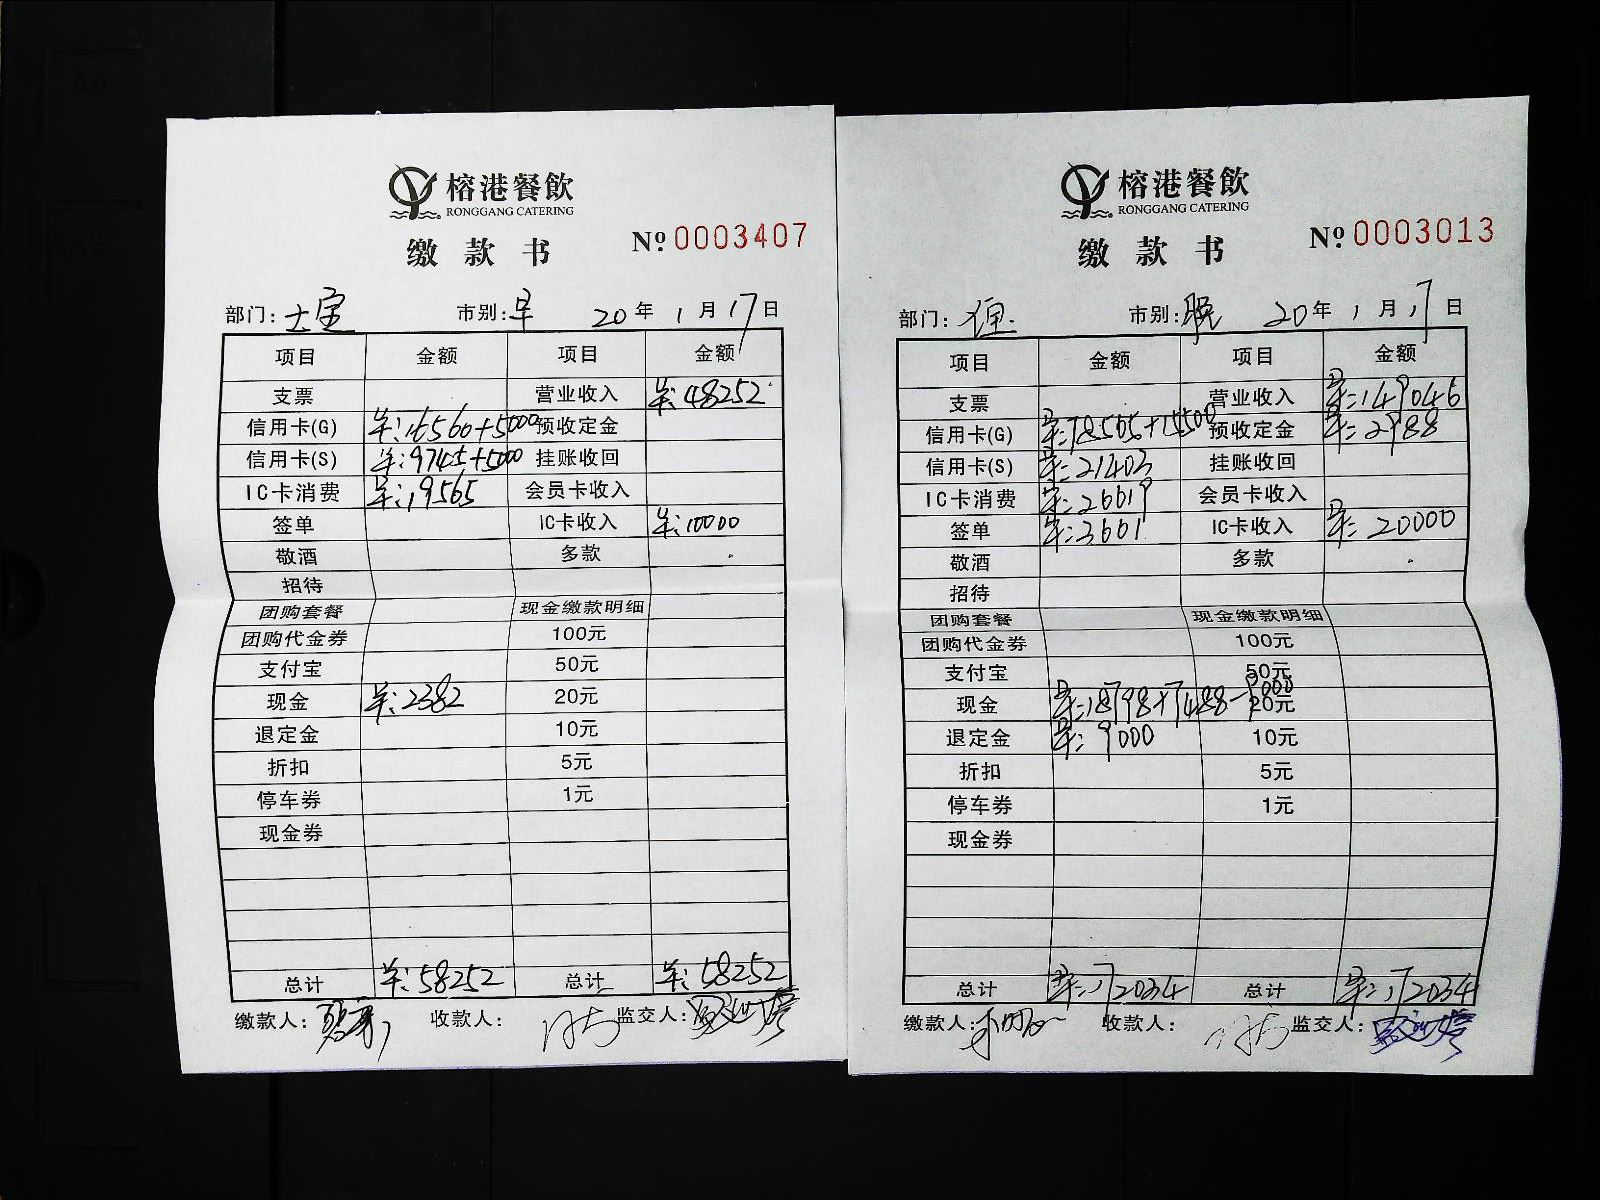 榕港餐飲
RONGGANG CATERING
缴款书 № 0003407
部门: 市别: 早 20年 1月17日
项目 金额 项目 金额
支票 营业收入 羊:48252
信用卡(G) 羊:16560+5000 预收定金
信用卡(S) 羊:9745+5000 挂账收回
IC卡消费 羊:19565 会员卡收入
签单 IC卡收入 羊:10000
敬酒 多款
招待
团购套餐 现金缴款明细
团购代金券 100元
支付宝 50元
现金 羊:2382 20元
退定金 10元
折扣 5元
停车券 1元
现金券
总计 羊:58252 总计 羊:58252
缴款人: 收款人: 监交人:
榕港餐飲
RONGGANG CATERING
缴款书 № 0003013
部门: 市别: 晚 20年 1月17日
项目 金额 项目 金额
支票 营业收入 羊:149046
信用卡(G) 羊:78565+15500 预收定金 羊:2988
信用卡(S) 羊:21403 挂账收回
IC卡消费 羊:26619 会员卡收入
签单 羊:3601 IC卡收入 羊:20000
敬酒 多款
招待
团购套餐 现金缴款明细
团购代金券 100元
支付宝 50元
现金 羊:18798+7488-9000 20元
退定金 羊:9000 10元
折扣 5元
停车券 1元
现金券
总计 羊:172034 总计 羊:172034
缴款人: 收款人: 监交人: